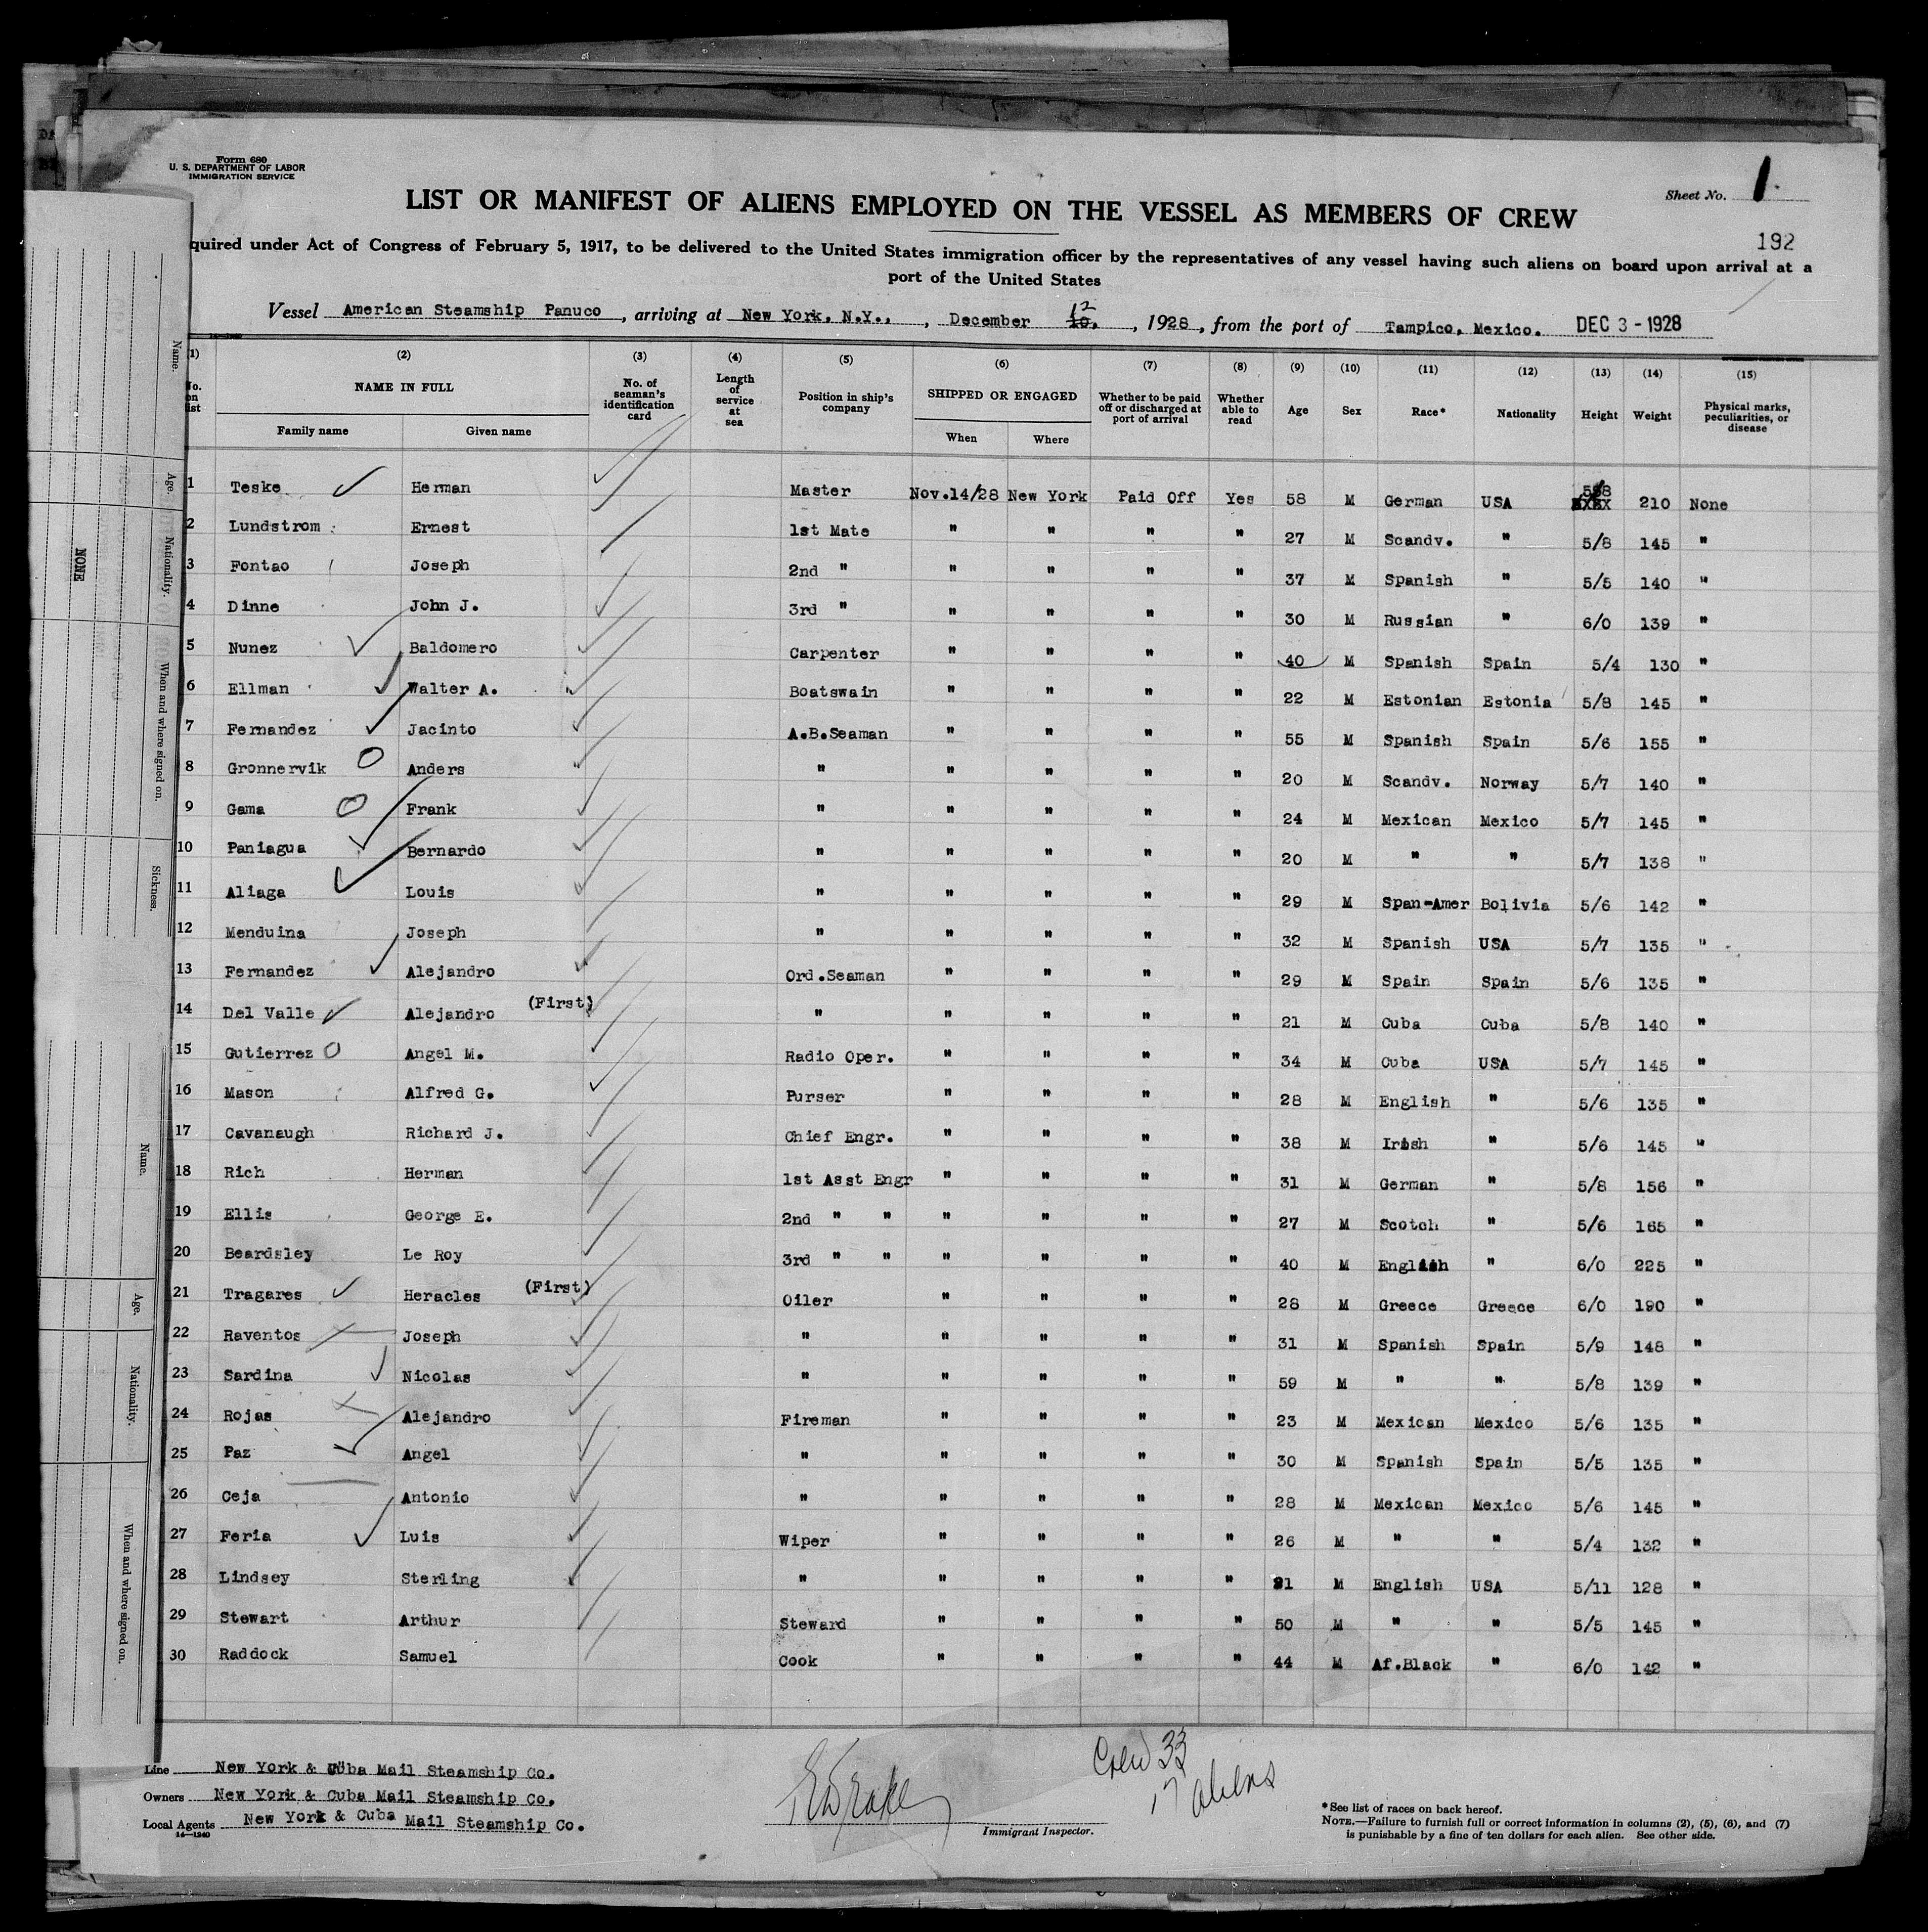 Form 680
U. S. DEPARTMENT OF LABOR
IMMIGRATION SERVICE
Sheet No. 1.
LIST OR MANIFEST OF ALIENS EMPLOYED ON THE VESSEL AS MEMBERS OF CREW
192
quired under Act of Congress of February 5, 1917, to be delivered to the United States immigration officer by the representatives of any vessel having such aliens on board upon arrival at a
port of the United States
Vessel American Steamship Panuco, arriving at New York, N.Y., December 10, 12, 1928, from the port of Tampico, Mexico. DEC 3 - 1928
(1) (2) (3) (4) (5) (6) (7) (8) (9) (10) (11) (12) (13) (14) (15)
No. on list NAME IN FULL No. of seaman's identification card Length of service at sea Position in ship's company SHIPPED OR ENGAGED Whether to be paid off or discharged at port of arrival Whether able to read Age Sex Race* Nationality Height Weight Physical marks, peculiarities, or disease
Family name Given name When Where
1 Teske Herman Master Nov.14/28 New York Paid Off Yes 58 M German USA 210 None
2 Lundstrom Ernest 1st Mate " " " " 27 M Scandv. " 5/8 145 "
3 Fontao Joseph 2nd " " " " " 37 M Spanish " 5/5 140 "
4 Dinne John J. 3rd " " " " " 30 M Russian " 6/0 139 "
5 Nunez Baldomero Carpenter " " " " 40 M Spanish Spain 5/4 130 "
6 Ellman Walter A. Boatswain " " " " 22 M Estonian Estonia 5/8 145 "
7 Fernandez Jacinto A.B.Seaman " " " " 55 M Spanish Spain 5/6 155 "
8 Gronnervik Anders " " " " " 20 M Scandv. Norway 5/7 140 "
9 Gama Frank " " " " " 24 M Mexican Mexico 5/7 145 "
10 Paniagua Bernardo " " " " " 20 M " " 5/7 138 "
11 Aliaga Louis " " " " " 29 M Span-Amer Bolivia 5/6 142 "
12 Menduina Joseph " " " " " 32 M Spanish USA 5/7 135 "
13 Fernandez Alejandro Ord.Seaman " " " " 29 M Spain Spain 5/6 135 "
14 Del Valle Alejandro (First) " " " " " 21 M Cuba Cuba 5/8 140 "
15 Gutierrez Angel M. Radio Oper. " " " " 34 M Cuba USA 5/7 145 "
16 Mason Alfred G. Purser " " " " 28 M English " 5/6 135 "
17 Cavanaugh Richard J. Chief Engr. " " " " 38 M Irish " 5/6 145 "
18 Rich Herman 1st Asst Engr " " " " 31 M German " 5/8 156 "
19 Ellis George E. 2nd " " " " " " 27 M Scotch " 5/6 165 "
20 Beardsley Le Roy 3rd " " " " " " 40 M English " 6/0 225 "
21 Tragares Heracles (First) Oiler " " " " 28 M Greece Greece 6/0 190 "
22 Raventos Joseph " " " " " 31 M Spanish Spain 5/9 148 "
23 Sardina Nicolas " " " " " 59 M " " 5/8 139 "
24 Rojas Alejandro Fireman " " " " 23 M Mexican Mexico 5/6 135 "
25 Paz Angel " " " " " 30 M Spanish Spain 5/5 135 "
26 Ceja Antonio " " " " " 28 M Mexican Mexico 5/6 145 "
27 Feria Luis Wiper " " " " 26 M " " 5/4 132 "
28 Lindsey Sterling " " " " " 21 M English USA 5/11 128 "
29 Stewart Arthur Steward " " " " 50 M " " 5/5 145 "
30 Raddock Samuel Cook " " " " 44 M Af.Black " 6/0 142 "
Line New York & Cuba Mail Steamship Co.
Owners New York & Cuba Mail Steamship Co.
Local Agents New York & Cuba Mail Steamship Co.
14—1240
Immigrant Inspector.
Crew 33
17 aliens
*See list of races on back hereof.
NOTE.—Failure to furnish full or correct information in columns (2), (5), (6), and (7)
is punishable by a fine of ten dollars for each alien. See other side.
Name.
Age.
Nationality.
NONE
When and where signed on.
Sickness.
Name.
Age.
Nationality.
When and where signed on.